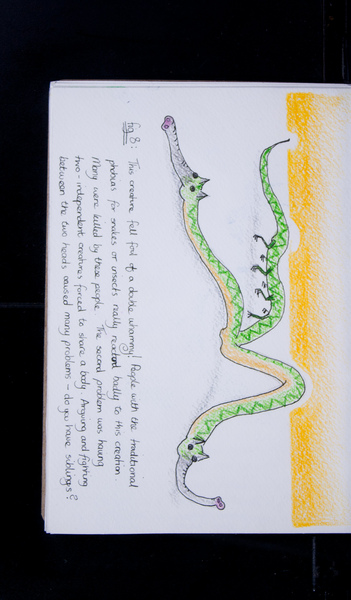 fig 8: This creature fell foul of a double whammy! People with the traditional
phobias for snakes or insects really reacted badly to this creation
Many were killed by these people. The second problem was having
two-independent creatures forced to share a body. Arguing and fighting
between the two heads caused many problems - do you have siblings?